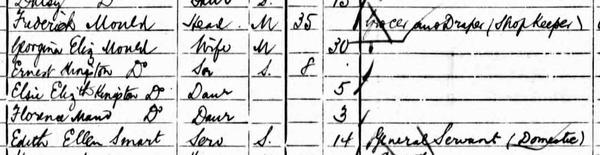 Daisy D° Daur 13
Frederick Mould Head M 35 Grocer and Draper (Shop Keeper)
Georgina Eliz Mould Wife M 30
Ernest Kingston D° Son S. 8
Elsie Elizth Kingston D° Daur 5
Florence Maud D° Daur 3
Edith Ellen Smart Serv S. 14 General Servant (Domestic)